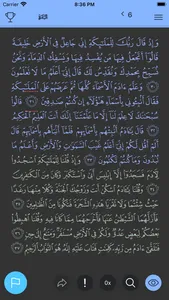 8:36 PM
6
وَإِذْ قَالَ رَبُّكَ لِلْمَلَٰٓئِكَةِ إِنِّى جَاعِلٌ فِى ٱلْأَرْضِ خَلِيفَةً
قَالُوٓا۟ أَتَجْعَلُ فِيهَا مَن يُفْسِدُ فِيهَا وَيَسْفِكُ ٱلدِّمَآءَ وَنَحْنُ
نُسَبِّحُ بِحَمْدِكَ وَنُقَدِّسُ لَكَ قَالَ إِنِّىٓ أَعْلَمُ مَا لَا تَعْلَمُونَ
٣٠ وَعَلَّمَ ءَادَمَ ٱلْأَسْمَآءَ كُلَّهَا ثُمَّ عَرَضَهُمْ عَلَى ٱلْمَلَٰٓئِكَةِ
فَقَالَ أَنۢبِـُٔونِى بِأَسْمَآءِ هَٰٓؤُلَآءِ إِن كُنتُمْ صَٰدِقِينَ ٣١ قَالُوا۟
سُبْحَٰنَكَ لَا عِلْمَ لَنَآ إِلَّا مَا عَلَّمْتَنَآ إِنَّكَ أَنتَ ٱلْعَلِيمُ ٱلْحَكِيمُ
٣٢ قَالَ يَٰٓـَٔادَمُ أَنۢبِئْهُم بِأَسْمَآئِهِمْ فَلَمَّآ أَنۢبَأَهُم بِأَسْمَآئِهِمْ
قَالَ أَلَمْ أَقُل لَّكُمْ إِنِّىٓ أَعْلَمُ غَيْبَ ٱلسَّمَٰوَٰتِ وَٱلْأَرْضِ وَأَعْلَمُ مَا
تُبْدُونَ وَمَا كُنتُمْ تَكْتُمُونَ ٣٣ وَإِذْ قُلْنَا لِلْمَلَٰٓئِكَةِ ٱسْجُدُوا۟
لِـَٔادَمَ فَسَجَدُوٓا۟ إِلَّآ إِبْلِيسَ أَبَىٰ وَٱسْتَكْبَرَ وَكَانَ مِنَ ٱلْكَٰفِرِينَ
٣٤ وَقُلْنَا يَٰٓـَٔادَمُ ٱسْكُنْ أَنتَ وَزَوْجُكَ ٱلْجَنَّةَ وَكُلَا مِنْهَا رَغَدًا
حَيْثُ شِئْتُمَا وَلَا تَقْرَبَا هَٰذِهِ ٱلشَّجَرَةَ فَتَكُونَا مِنَ ٱلظَّٰلِمِينَ ٣٥
فَأَزَلَّهُمَا ٱلشَّيْطَٰنُ عَنْهَا فَأَخْرَجَهُمَا مِمَّا كَانَا فِيهِ وَقُلْنَا ٱهْبِطُوا۟
بَعْضُكُمْ لِبَعْضٍ عَدُوٌّ وَلَكُمْ فِى ٱلْأَرْضِ مُسْتَقَرٌّ وَمَتَٰعٌ إِلَىٰ حِينٍ ٣٦
فَتَلَقَّىٰٓ ءَادَمُ مِن رَّبِّهِۦ كَلِمَٰتٍ فَتَابَ عَلَيْهِ إِنَّهُۥ هُوَ ٱلتَّوَّابُ ٱلرَّحِيمُ